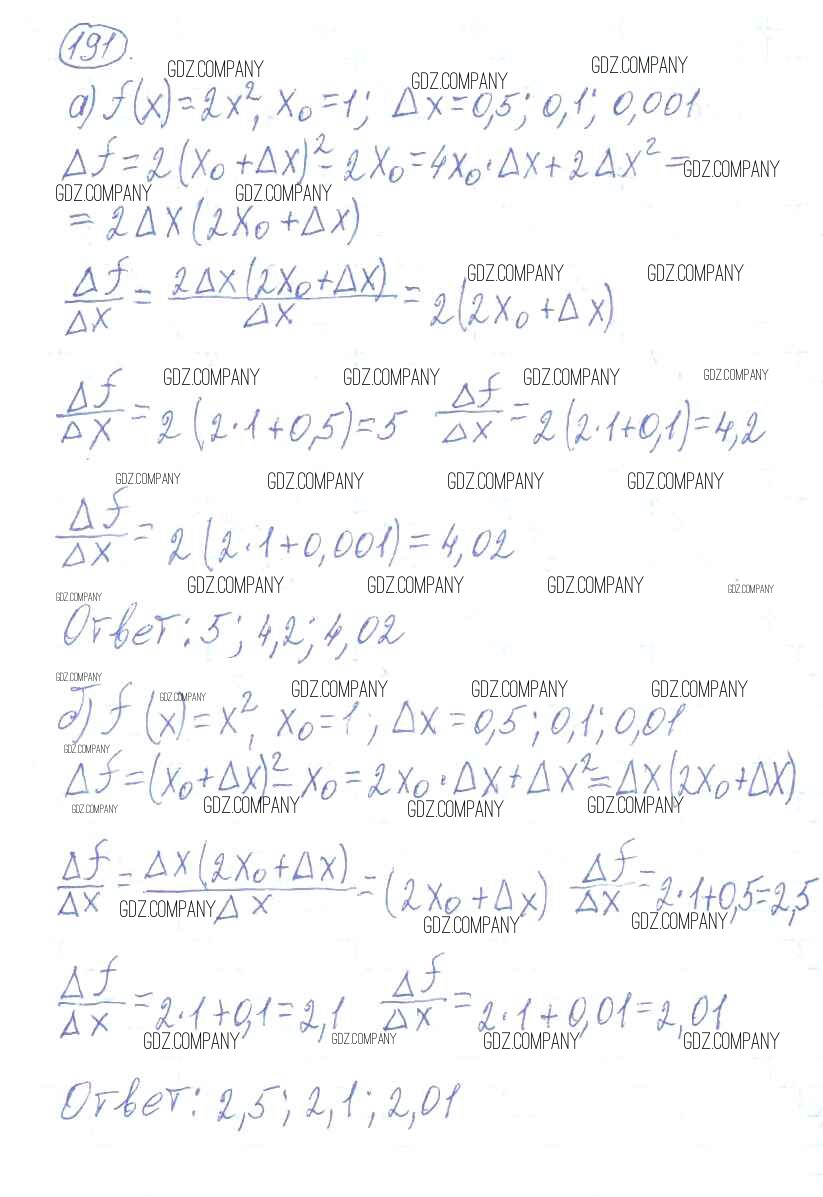 191.
GDZ.COMPANY GDZ.COMPANY GDZ.COMPANY
а) f(x)=2x², x₀=1; Δx=0,5; 0,1; 0,001
Δf=2(x₀+Δx)²-2x₀=4x₀·Δx+2Δx²= GDZ.COMPANY
GDZ.COMPANY GDZ.COMPANY
=2Δx(2x₀+Δx)
GDZ.COMPANY GDZ.COMPANY
Δf/Δx = 2Δx(2x₀+Δx)/Δx = 2(2x₀+Δx)
GDZ.COMPANY GDZ.COMPANY GDZ.COMPANY GDZ.COMPANY
Δf/Δx = 2(2·1+0,5)=5 Δf/Δx = 2(2·1+0,1)=4,2
GDZ.COMPANY GDZ.COMPANY GDZ.COMPANY GDZ.COMPANY
Δf/Δx = 2(2·1+0,001)=4,02
GDZ.COMPANY GDZ.COMPANY GDZ.COMPANY GDZ.COMPANY GDZ.COMPANY
Ответ: 5; 4,2; 4,02
GDZ.COMPANY GDZ.COMPANY GDZ.COMPANY GDZ.COMPANY GDZ.COMPANY
б) f(x)=x², x₀=1; Δx=0,5; 0,1; 0,01
GDZ.COMPANY
Δf=(x₀+Δx)²-x₀=2x₀·Δx+Δx²=Δx(2x₀+Δx)
GDZ.COMPANY GDZ.COMPANY GDZ.COMPANY GDZ.COMPANY
Δf/Δx = Δx(2x₀+Δx)/Δx = (2x₀+Δx) Δf/Δx = 2·1+0,5=2,5
GDZ.COMPANY GDZ.COMPANY GDZ.COMPANY
Δf/Δx = 2·1+0,1=2,1 Δf/Δx = 2·1+0,01=2,01
GDZ.COMPANY GDZ.COMPANY GDZ.COMPANY GDZ.COMPANY
Ответ: 2,5; 2,1; 2,01